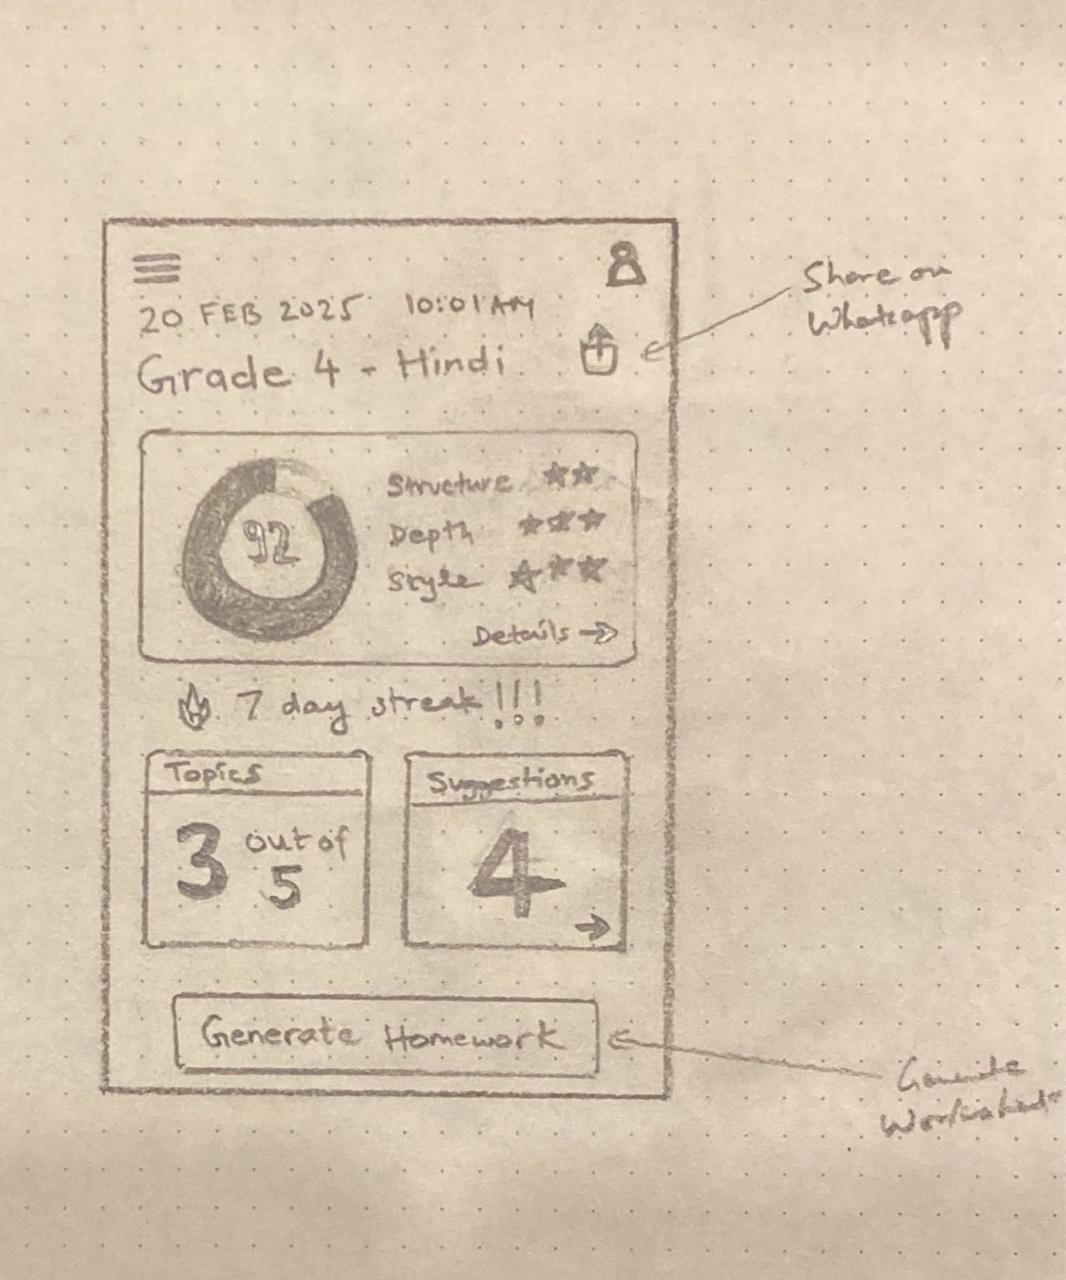 20 FEB 2025 10:01 AM
Grade 4 - Hindi
Share on
Whatsapp
92
Structure
Depth
Style
Details →
7 day streak!!!
Topics
3 out of
5
Suggestions
4
→
Generate Homework
Generate